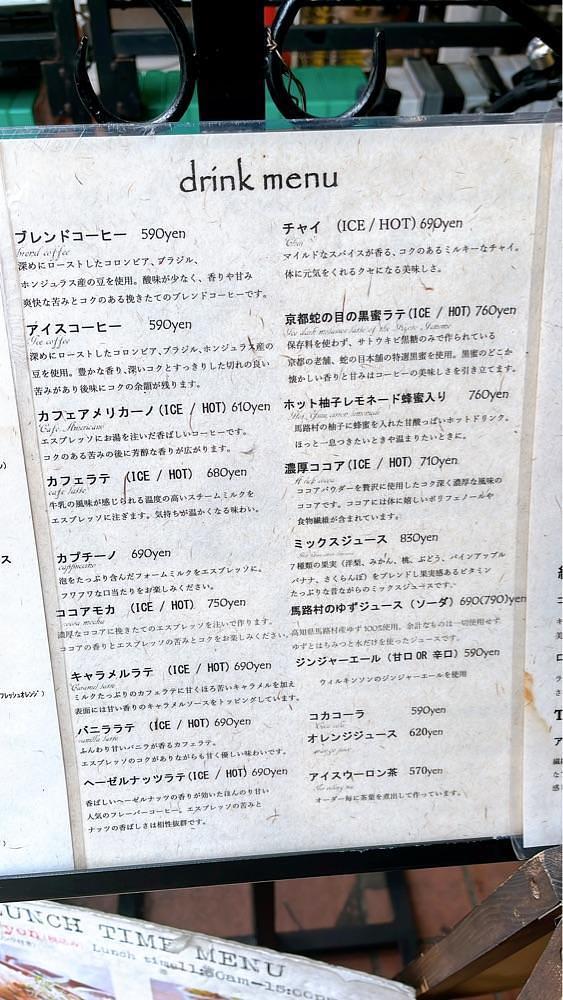 drink menu
ブレンドコーヒー 590yen
深めにローストしたコロンビア、ブラジル、
ホンジュラス産の豆を使用。酸味が少なく、香りや甘み
爽快な苦みとコクのある挽きたてのブレンドコーヒーです。
アイスコーヒー 590yen
Ice coffee
深めにローストしたコロンビア、ブラジル、ホンジュラス産の
豆を使用。豊かな香り、深いコクとすっきりした切れの良い
苦みがあり後味にコクの余韻が残ります。
カフェアメリカーノ(ICE / HOT) 610yen
Cafe Americano
エスプレッソにお湯を注いだ香ばしいコーヒーです。
コクのある苦みの後に芳醇な香りが広がります。
カフェラテ (ICE / HOT) 680yen
cafe latte
牛乳の風味が感じられる温度の高いスチームミルクを
エスプレッソに注ぎます。気持ちが温かくなる味わい。
カプチーノ 690yen
cappuccino
泡をたっぷり含んだフォームミルクをエスプレッソに。
フワフワな口当たりをお楽しみください。
ココアモカ (ICE / HOT) 750yen
cocoa mocha
濃厚なココアに挽きたてのエスプレッソを注いで作ります。
ココアの香りとエスプレッソの苦みとコクをお楽しみください。
キャラメルラテ (ICE / HOT) 690yen
Caramel latte
ミルクたっぷりのカフェラテに甘くほろ苦いキャラメルを加え
表面には甘い香りのキャラメルソースをトッピングしています。
バニララテ (ICE / HOT) 690yen
vanilla latte
ふんわり甘いバニラが香るカフェラテ。
エスプレッソのコクがありながらも甘く優しい味わいです。
ヘーゼルナッツラテ(ICE / HOT) 690yen
香ばしいヘーゼルナッツの香りが効いたほんのり甘い
人気のフレーバーコーヒー。エスプレッソの苦みと
ナッツの香ばしさは相性抜群です。
チャイ (ICE / HOT) 690yen
Chai
マイルドなスパイスが香る、コクのあるミルキーなチャイ。
体に元気をくれるクセになる美味しさ。
京都蛇の目の黒蜜ラテ(ICE / HOT) 760yen
保存料を使わず、サトウキビ黒糖のみで作られている
京都の老舗、蛇の目本舗の特選黒蜜を使用。黒蜜のどこか
懐かしい香りと甘みはコーヒーの美味しさを引き立てます。
ホット柚子レモネード蜂蜜入り 760yen
馬路村の柚子に蜂蜜を入れた甘酸っぱいホットドリンク。
ほっと一息つきたいときや温まりたいときに。
濃厚ココア(ICE / HOT) 710yen
ココアパウダーを贅沢に使用したコク深く濃厚な風味の
ココアです。ココアには体に嬉しいポリフェノールや
食物繊維が含まれています。
ミックスジュース 830yen
7種類の果実(洋梨、みかん、桃、ぶどう、パインアップル
バナナ、さくらんぼ)をブレンドし果実感あるビタミン
たっぷりな昔ながらのミックスジュースです。
馬路村のゆずジュース(ソーダ) 690(790)yen
高知県馬路村産ゆず100%使用。余計なものは一切使用せず
ゆずとはちみつと水だけを使ったジュースです。
ジンジャーエール(甘口 OR 辛口) 590yen
ウィルキンソンのジンジャーエールを使用
コカコーラ 590yen
オレンジジュース 620yen
アイスウーロン茶 570yen
オーダー毎に茶葉を煮出して作っています。
LUNCH TIME MENU
Lunch time11:30am-15:00pm